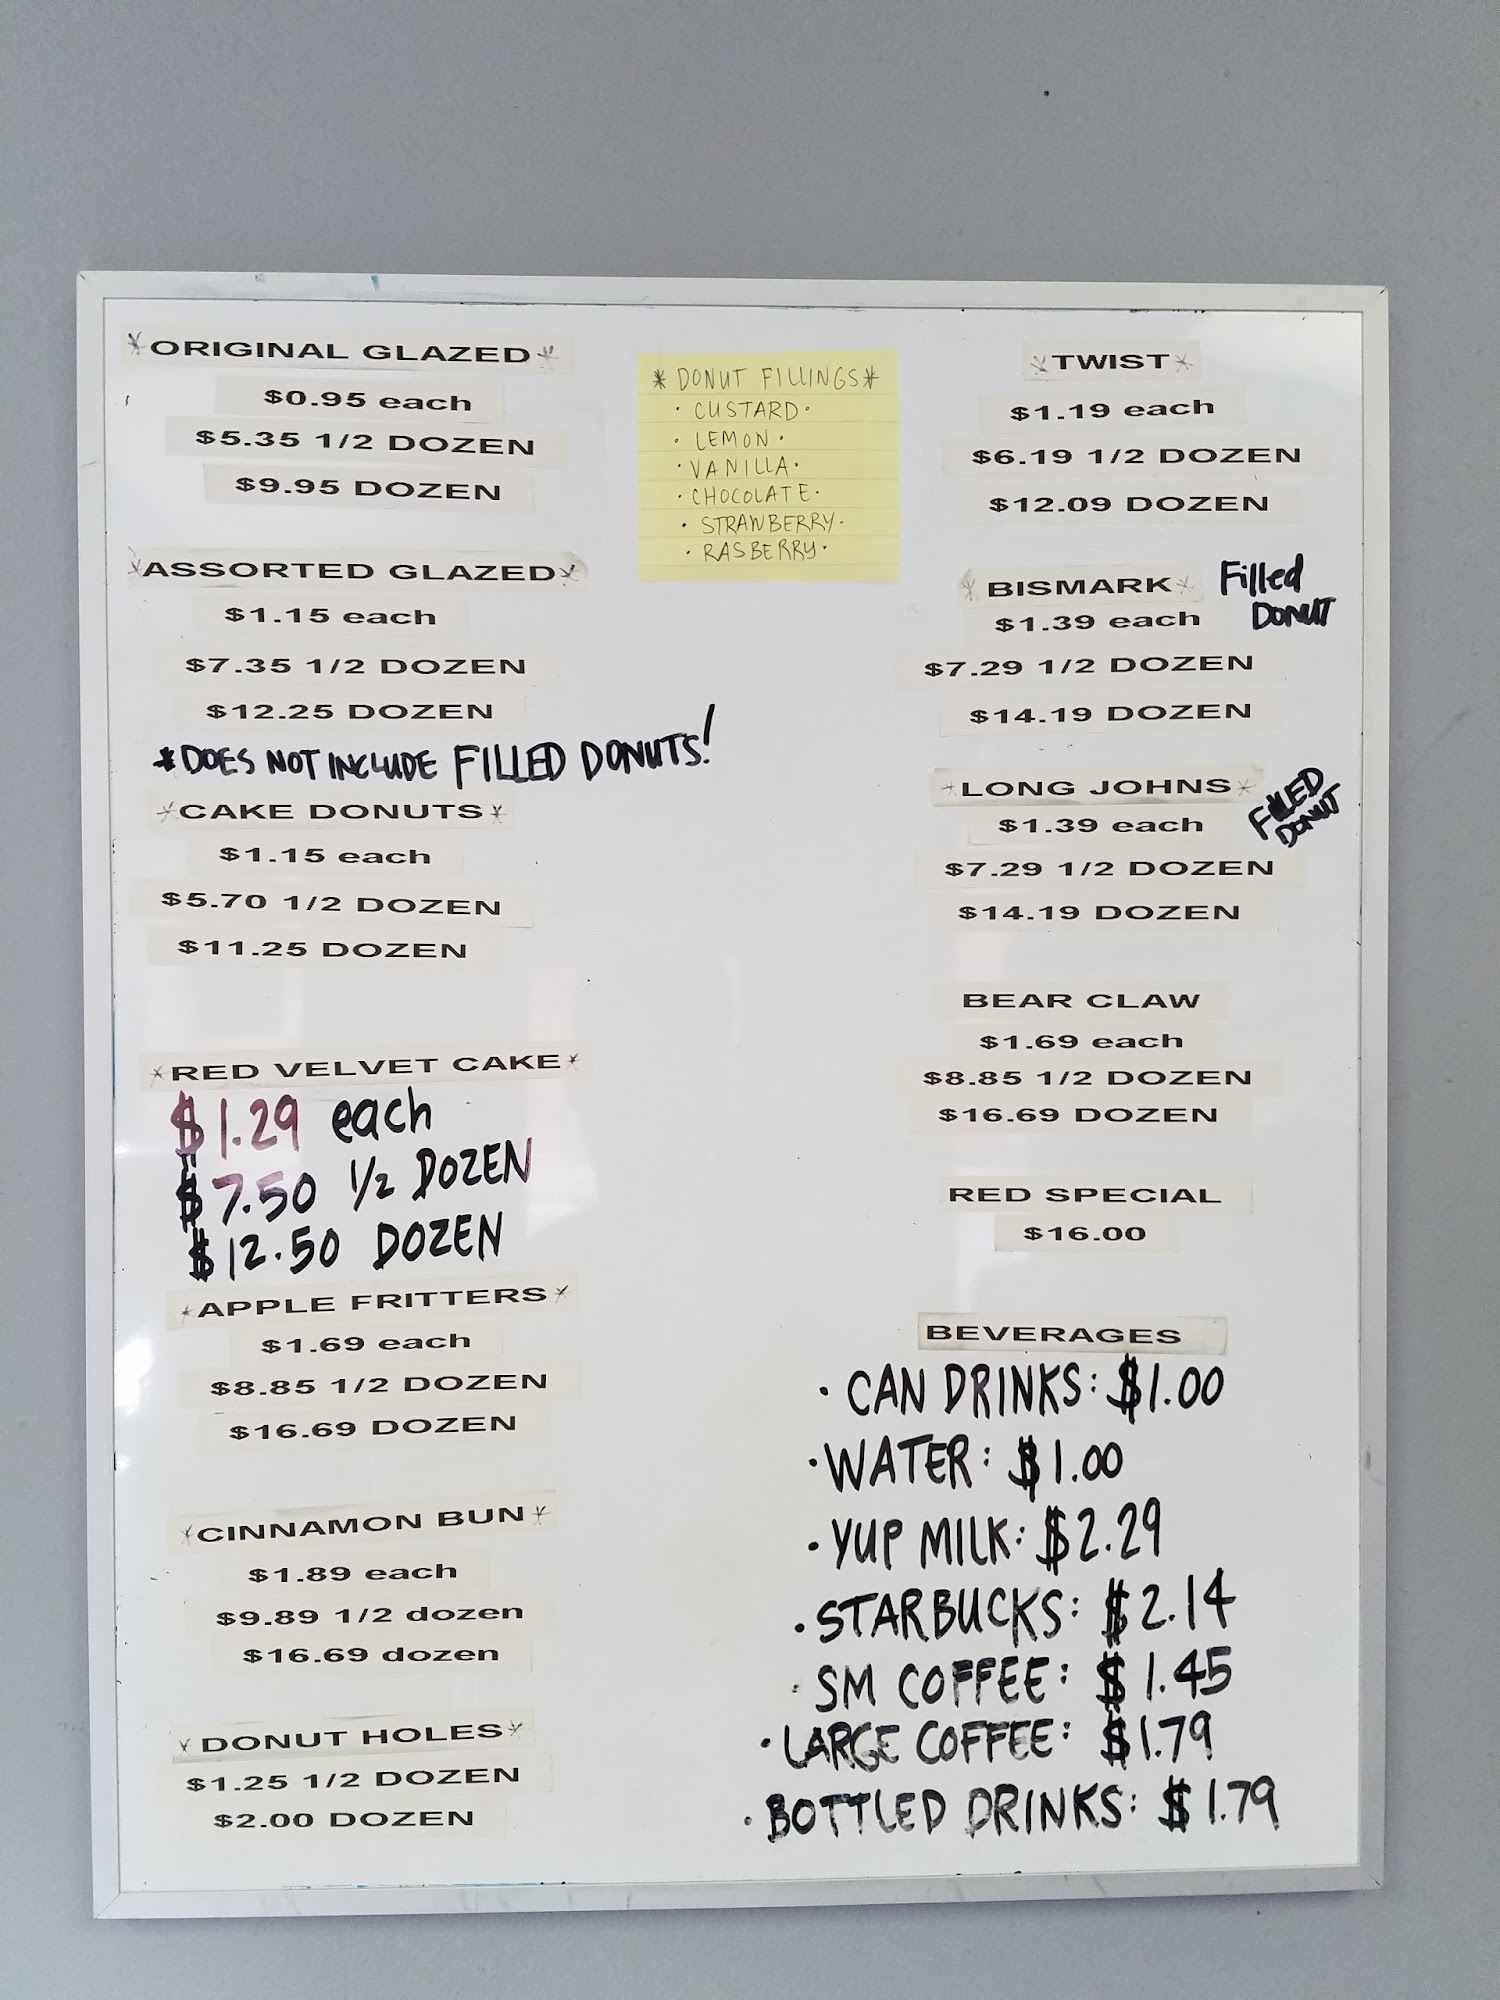 *ORIGINAL GLAZED*
$0.95 each
$5.35 1/2 DOZEN
$9.95 DOZEN
*ASSORTED GLAZED*
$1.15 each
$7.35 1/2 DOZEN
$12.25 DOZEN
*DOES NOT INCLUDE FILLED DONUTS!
*CAKE DONUTS*
$1.15 each
$5.70 1/2 DOZEN
$11.25 DOZEN
*RED VELVET CAKE*
$1.29 each
$7.50 1/2 DOZEN
$12.50 DOZEN
*APPLE FRITTERS*
$1.69 each
$8.85 1/2 DOZEN
$16.69 DOZEN
*CINNAMON BUN*
$1.89 each
$9.89 1/2 dozen
$16.69 dozen
*DONUT HOLES*
$1.25 1/2 DOZEN
$2.00 DOZEN
*DONUT FILLINGS*
· CUSTARD ·
· LEMON ·
· VANILLA ·
· CHOCOLATE ·
· STRAWBERRY ·
· RASBERRY ·
*TWIST*
$1.19 each
$6.19 1/2 DOZEN
$12.09 DOZEN
*BISMARK* Filled
DONUT
$1.39 each
$7.29 1/2 DOZEN
$14.19 DOZEN
*LONG JOHNS* FILLED
DONUT
$1.39 each
$7.29 1/2 DOZEN
$14.19 DOZEN
BEAR CLAW
$1.69 each
$8.85 1/2 DOZEN
$16.69 DOZEN
RED SPECIAL
$16.00
BEVERAGES
· CAN DRINKS: $1.00
· WATER: $1.00
· YUP MILK: $2.29
· STARBUCKS: $2.14
· SM COFFEE: $1.45
· LARGE COFFEE: $1.79
· BOTTLED DRINKS: $1.79